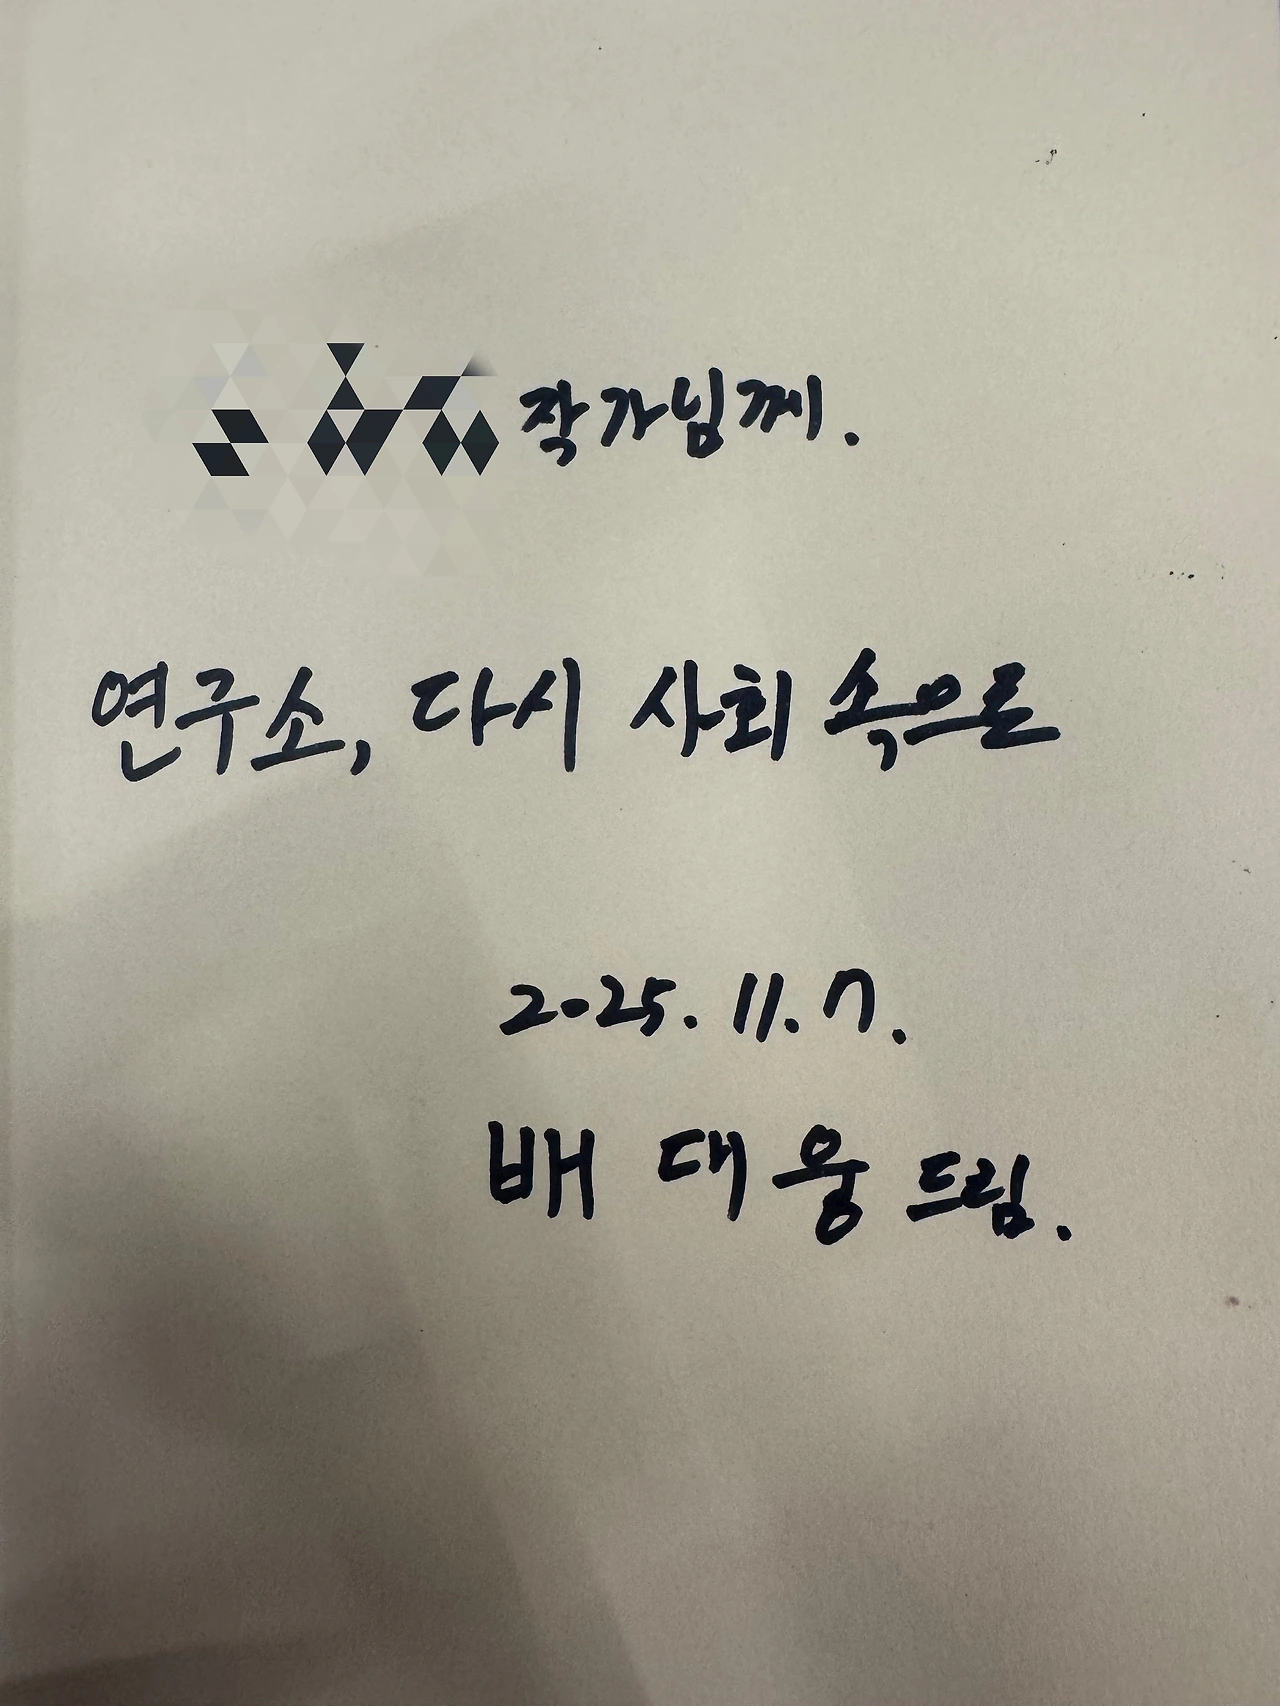 작가님께.
연구소, 다시 사회 속으로
2025. 11. 7.
배 대웅 드림.